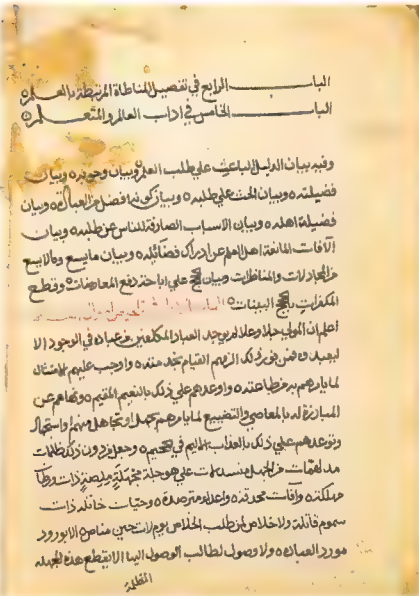 الباب الرابع في تفصيل المناطاة المرتبطة بالعلم
الباب الخامس في اداب العالم والمتعلم
وفيه بيان الدليل الباعث علي طلب العلم وبيان وجوده وبيان
فضيلته وبيان الحث علي طلبه وبيان كونه افضل من العبادة وبيان
فضيلة اهله وبيان الاسباب الصارفة للناس عن طلبه وبيان
الآفات المانعة اهل العلم عن ادراك فضائله وبيان مايسع ومالايسع
من المجادلات والمناظرات وبيان علي اباحة دفع المعارضات وقطع
المكفرات البينات الباب
اعلم ان المولي جلا وعلا لم يوجد العباد المكلفين من عباده في الوجود الا
ليعبدوه فمن فور ذلك الزمهم القيام بخدمته واوجب عليهم الامتثال
لما يامرهم به من طاعته واوعدهم علي ذلك بالنعيم المقيم ونهاهم عن
المبارزة له بالمعاصي والتضييع لما يامرهم
وتوعدهم علي ذلك بالعذاب الاليم في وجعل من دون ذلك ظلمات
مدلهمات من الجهل علي هوجلة مهلكة ذات
مهلكة وآفات محدقة واعداء مترصدة وحيات خاتلة ذات
سموم قاتلة ولاخلاص لمن طلب الخلاص يوم لات حين مناص الا بورود
مورد العبادة ولا وصول لطالب الوصول اليها الا بقطع هذه
المظلمة